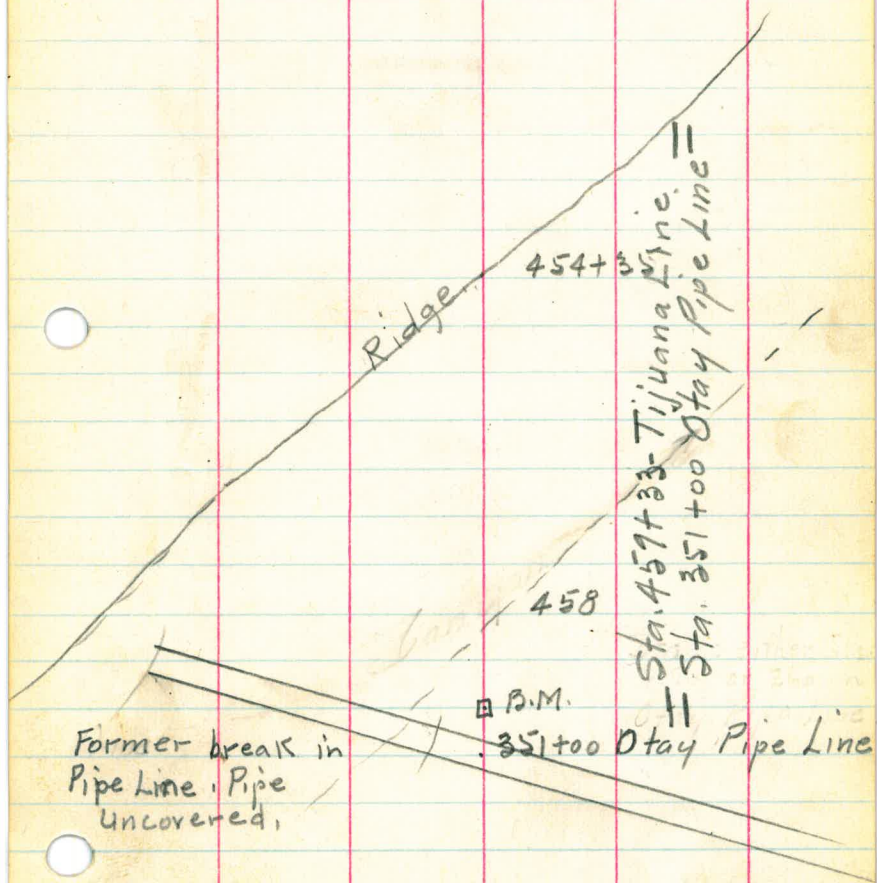 Ridge.
454+35.
= Sta. 459+33- Tijuana Line. =
= Sta. 351+00 Otay Pipe Line =
458
B.M.
351+00 Otay Pipe Line
Former break in
Pipe Line. Pipe
uncovered.